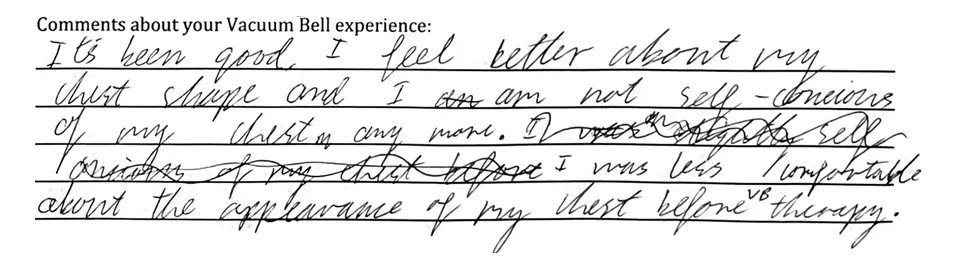 Comments about your Vacuum Bell experience:
It's been good. I feel better about my
chest shape and I am am not self-concious
of my chest any more. I was slightly self
concious of my chest before I was less comfortable
about the appearance of my chest before VB therapy.